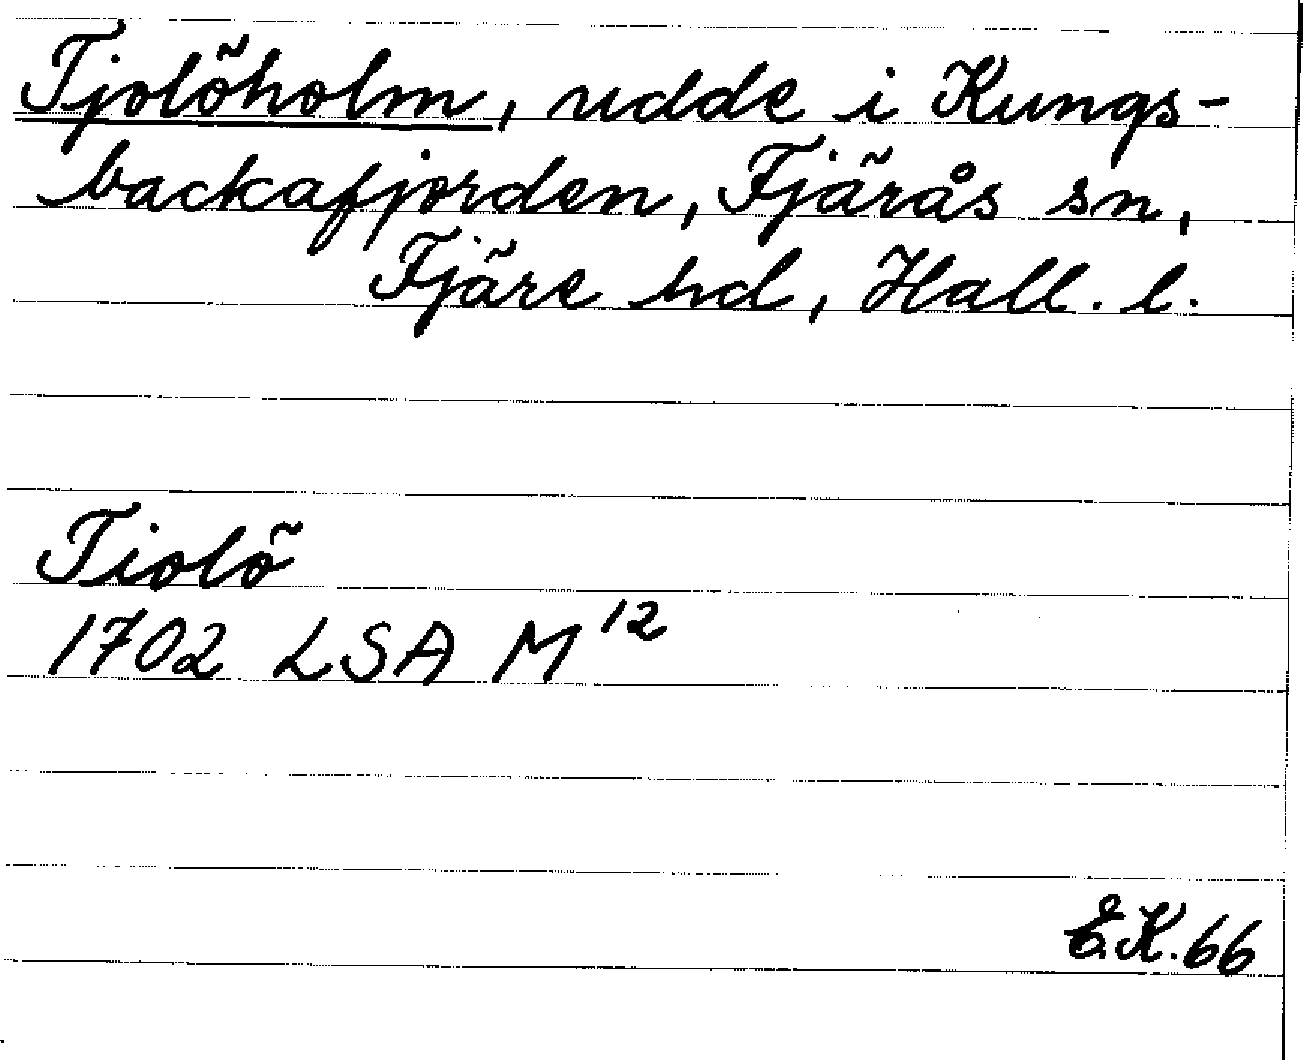 Tjolöholm, udde i Kungs-
backafjorden, Fjärås sn,
Fjäre hd, Hall. l.
Tiolö
1702 LSA M 12
E.K. 66